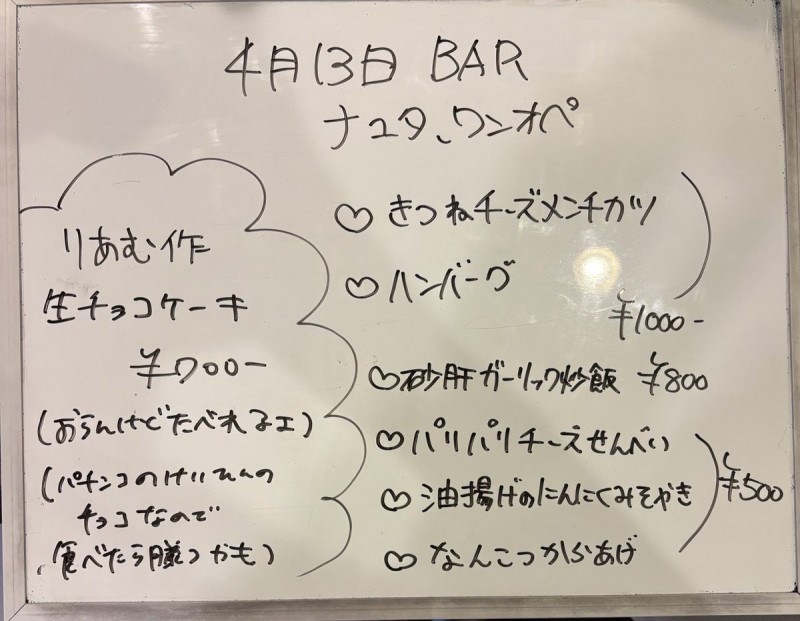 4月13日 BAR
ナユタ、ワンオペ
りあむ作
生チョコケーキ
¥700-
(おらんけどたべれるェ)
(パチンコのけいひんの
チョコなので
食べたら勝つかも)
♡きつねチーズメンチカツ
♡ハンバーグ
¥1000-
♡砂肝ガーリック炒飯 ¥800
♡パリパリチーズせんべい
♡油揚げのにんにくみそやき
¥500
♡なんこつからあげ